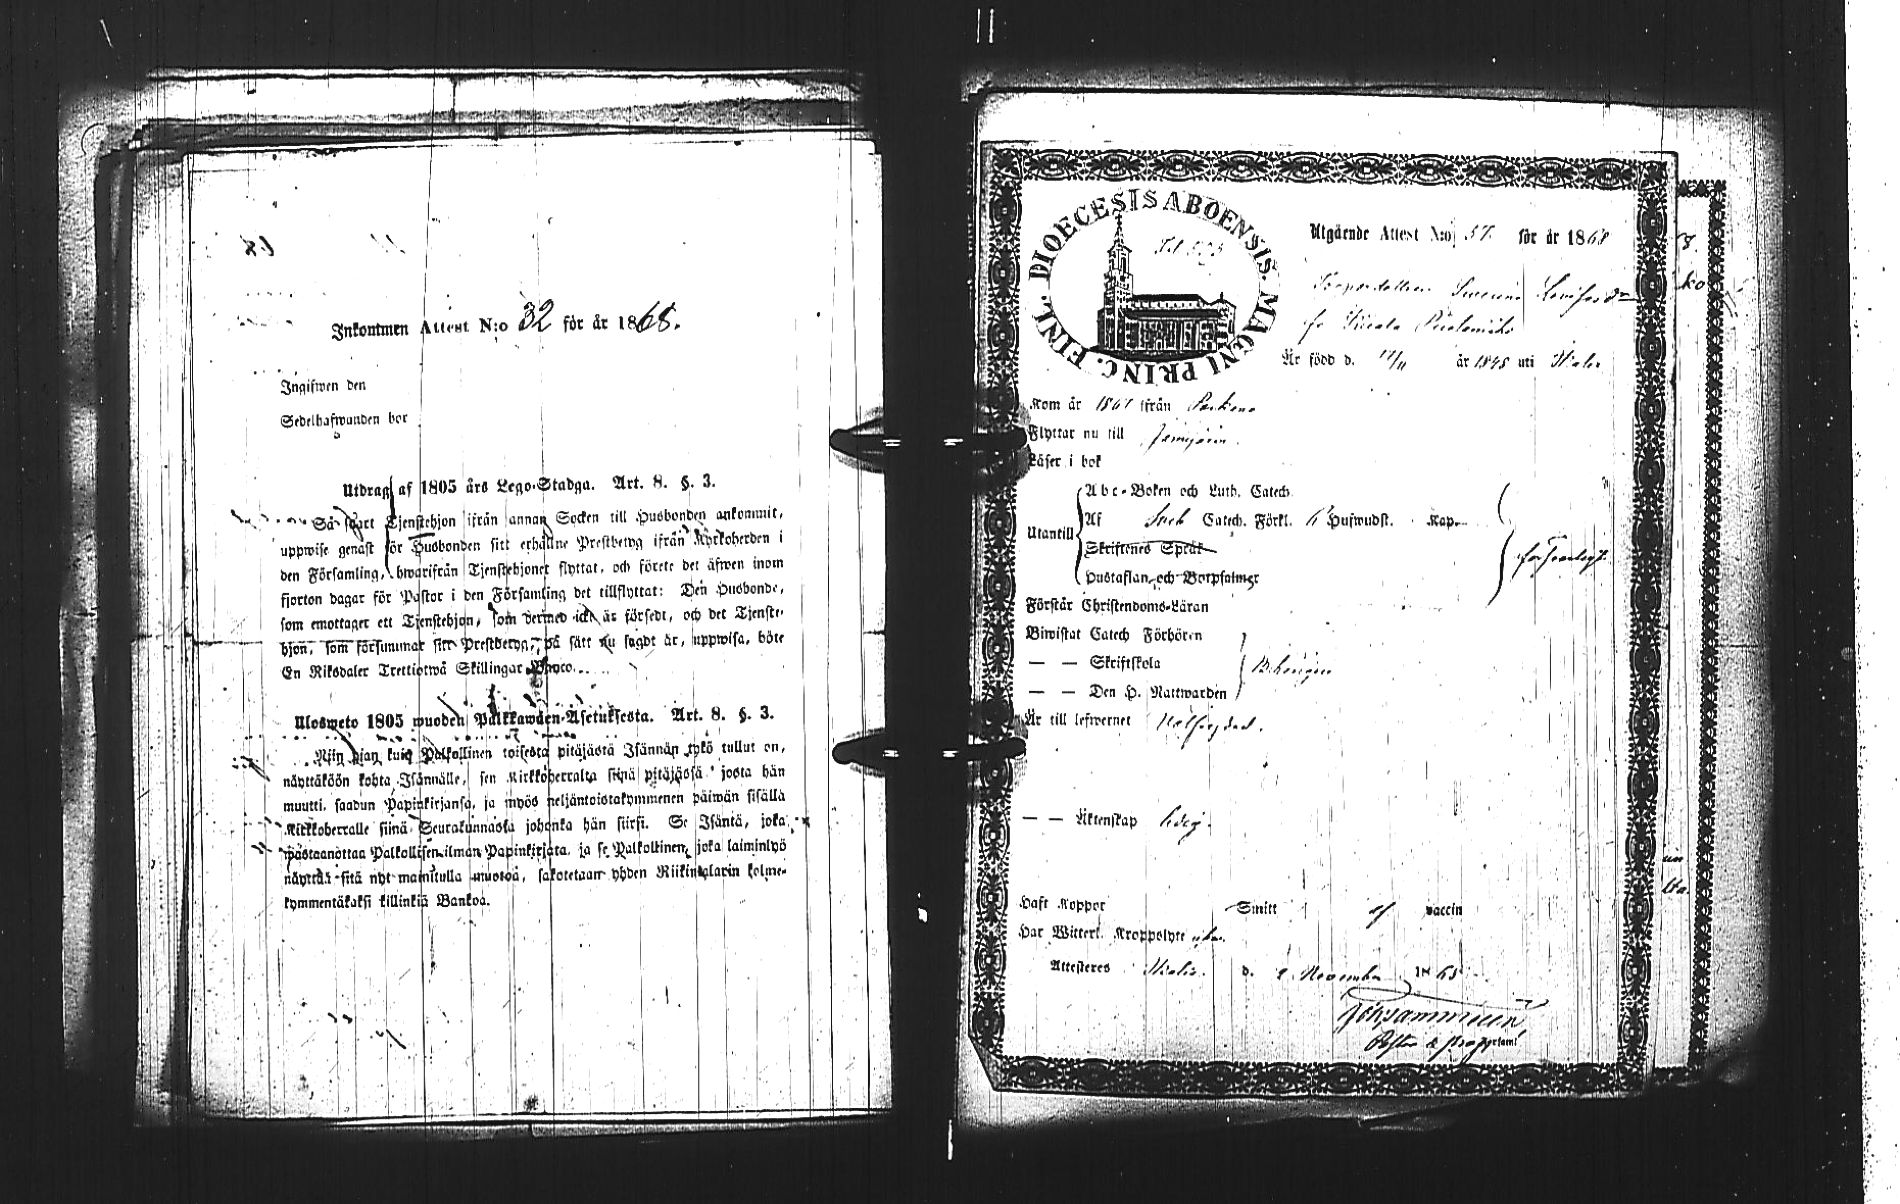 Inkommen Attest N:o 32 för år 1868.
Ingifwen den
Sedelhafwanden bor
Utdrag af 1805 års Lego-Stadga. Art. 8. §. 3.
Så snart Tjenstehjon ifrån annan Socken till Husbonden ankommit,
uppwise genast för Husbonden sitt erhållne Prestbetyg ifrån Kyrkoherden i
den Församling, hwarifrån Tjenstehjonet flyttat, och förete det äfwen inom
fjorton dagar för Pastor i den Församling det tillflyttat: Den Husbonde,
som emottager ett Tjenstehjon, som dermed icke är försedt, och det Tjenste-
hjon, som försummar sitt Prestbetyg, på sätt nu sagdt är, uppwisa, böte
En Riksdaler Trettiotwå Skillingar Banco.
Ulosweto 1805 wuoden Palkkawäen-Asetuksesta. Art. 8. §. 3.
Niin pian kuin Palkollinen toisesta pitäjästä Isännän tykö tullut on,
näyttäköön kohta Isännälle, sen Kirkkoherralta siinä pitäjässä josta hän
muutti, saadun Papinkirjansa, ja myös neljäntoistakymmenen päiwän sisällä
Kirkkoherralle siinä Seurakunnassa johonka hän siirsi. Se Isäntä, joka
wastaanottaa Palkollisen ilman Papinkirjata, ja se Palkollinen, joka laiminlyö
näyttää sitä nyt mainitulla muotoa, sakotetaan yhden Riikintalarin kolme-
kymmentäkaksi killinkiä Bankoa.
DIOECESIS ABOENSIS. MAGNI PRINC. FINL.
Utgående Attest N:o 57. för år 1868
Är född d. 11/11 år 1848 uti
Kom år 1867 ifrån Parkano
Flyttar nu till Jämijärvi.
Läser i bok
Abc-Boken och Luth. Catech.
Utantill
Af Sveb Catech. Förkl. 6 Hufwudst. Kap.
Skriftenes Språk
Hustaflan och Botpsalmer
försvarligt
Förstår Christendoms-Läran
Biwistat Catech Förhören
— — Skriftskola
Behörigen
— — Den H. Nattwarden
Är till lefwernet Välfrejdad.
— — Äktenskap ledig.
Haft Koppor Smitt af vaccin
Har Witterl. Kroppslyte
Attesteres d. November 1868
Pastor &